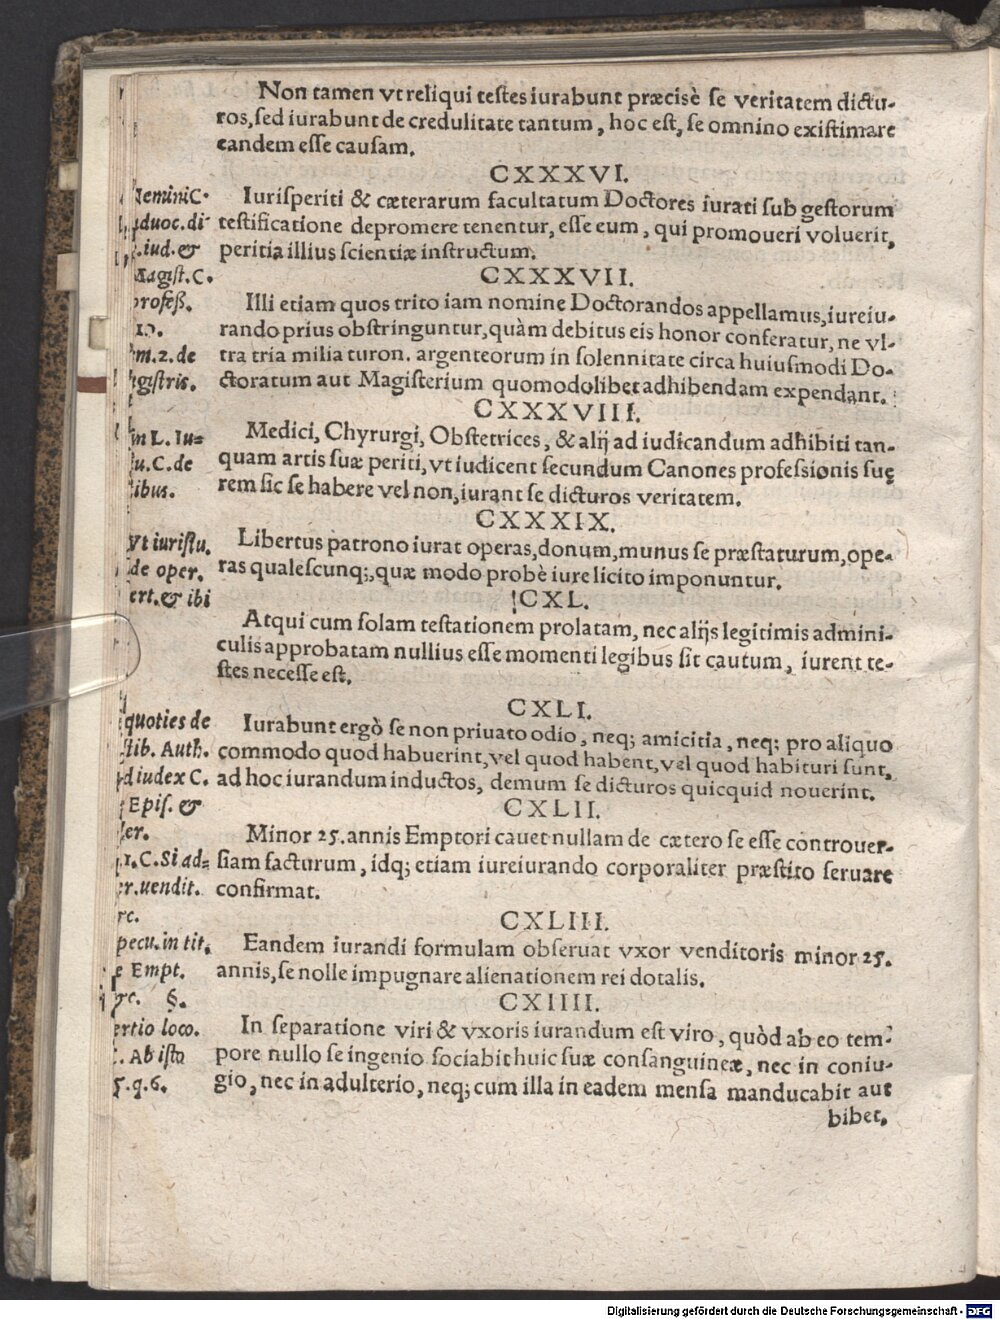 Non tamen vt reliqui testes iurabunt præcisè se veritatem dictu-
ros, sed iurabunt de credulitate tantum, hoc est, se omnino existimare
eandem esse causam.
CXXXVI.
Iurisperiti & cæterarum facultatum Doctores iurati sub gestorum
testificatione depromere tenentur, esse eum, qui promoueri voluerit,
peritia illius scientiæ instructum.
CXXXVII.
Illi etiam quos trito iam nomine Doctorandos appellamus, iureiu-
rando prius obstringuntur, quàm debitus eis honor conferatur, ne vl-
tra tria milia turon. argenteorum in solennitate circa huiusmodi Do-
ctoratum aut Magisterium quomodolibet adhibendam expendant.
CXXXVIII.
Medici, Chyrurgi, Obstetrices, & alij ad iudicandum adhibiti tan-
quam artis suæ periti, vt iudicent secundum Canones professionis suę
rem sic se habere vel non, iurant se dicturos veritatem.
CXXXIX.
Libertus patrono iurat operas, donum, munus se præstaturum, ope-
ras qualescunq;, quæ modo probè iure licito imponuntur.
CXL.
Atqui cum solam testationem prolatam, nec alijs legitimis admini-
culis approbatam nullius esse momenti legibus sit cautum, iurent te-
stes necesse est.
CXLI.
Iurabunt ergò se non priuato odio, neq; amicitia, neq; pro aliquo
commodo quod habuerint, vel quod habent, vel quod habituri sunt,
ad hoc iurandum inductos, demum se dicturos quicquid nouerint.
CXLII.
Minor 25. annis Emptori cauet nullam de cætero se esse controuer-
siam facturum, idq; etiam iureiurando corporaliter præstito seruare
confirmat.
CXLIII.
Eandem iurandi formulam obseruat vxor venditoris minor 25.
annis, se nolle impugnare alienationem rei dotalis.
CXIIII.
In separatione viri & vxoris iurandum est viro, quòd ab eo tem-
pore nullo se ingenio sociabit huic suæ consanguineæ, nec in coniu-
gio, nec in adulterio, neq; cum illa in eadem mensa manducabit aut
bibet.
eminiC.
duoc.di
.iud. &
Magist. C.
profeß.
m.2. de
gistris.
in L. Iu=
u.C.de
ibus.
Vt iuristu.
de oper.
ert. & ibi
quoties de
tib. Auth.
d iudex C.
Epis. &
ler.
.1.C.Si ad=
er.uendit.
rc.
pecu. in tit.
e Empt.
rc. §.
ertio loco.
. Ab isto
5.q.6.
Digitalisierung gefördert durch die Deutsche Forschungsgemeinschaft - DFG